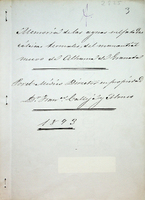 3
Memoria de las aguas sulfatadas
cálcicas termales, del manantial
nuevo de Alhama de Granada
Por el Médico Director en propiedad
Dn. Fran.co
1893